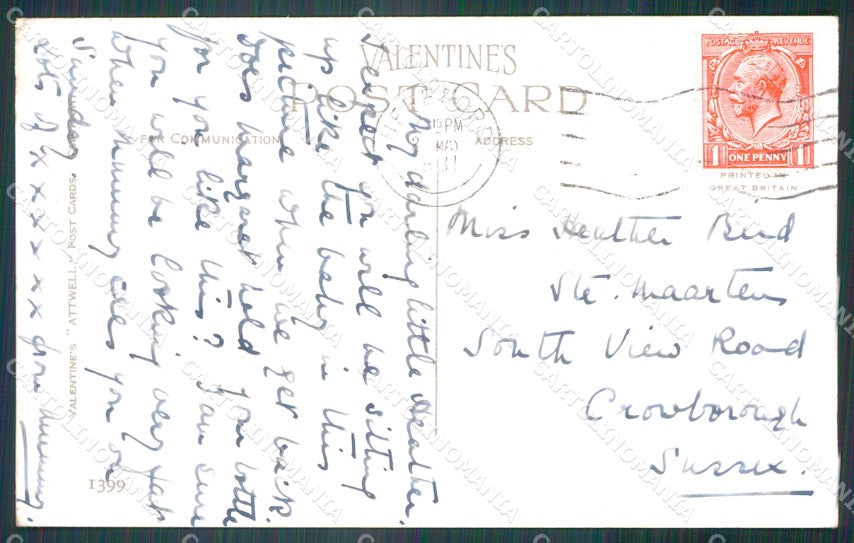 VALENTINES
POST CARD
FOR COMMUNICATION
ADDRESS
POSTAGE REVENUE
1 ONE PENNY 1
PRINTED IN
GREAT BRITAIN
15 PM
MAY
31
Miss Heather Bird
Ste. Maartens
South View Road
Crowborough
Sussex.
My darling little Heather,
I expect you will be sitting
up like the baby in this
picture when we get back.
Does Margaret hold your bottle
for you like this? I am sure
you will be looking very fat
when Mummy sees you on
Sunday.
Lots of x x x x x x from Mummy.
VALENTINE'S "ATTWELL" POST CARDS.
1399
CARTOLINOMANIA